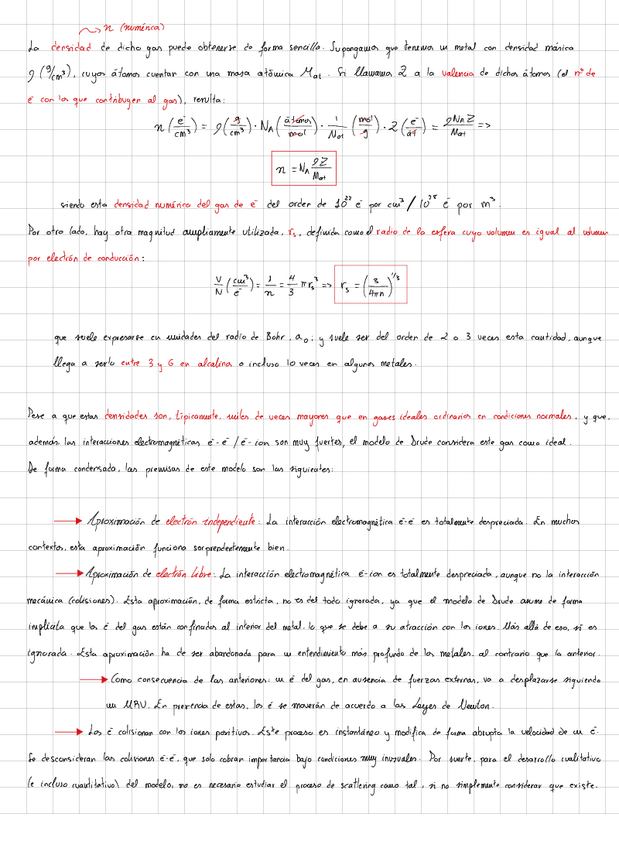 n (numérica)
La densidad de dicho gas puede obtenerse de forma sencilla. Supongamos que tenemos un metal con densidad másica
ρ (g/cm³), cuyos átomos cuentan con una masa atómica Mat. Si llamamos Z a la valencia de dichos átomos (el nº de
e⁻ con los que contribuyen al gas), resulta:
n (e⁻/cm³) = ρ (g/cm³) · NA (átomos/mol) · 1/Mat (mol/g) · Z (e⁻/át) = ρNAZ/Mat =>
n = NA ρZ/Mat
siendo esta densidad numérica del gas de e⁻ del orden de 10²² e⁻ por cm³ / 10²⁸ e⁻ por m³.
Por otro lado, hay otra magnitud ampliamente utilizada, rs, definida como el radio de la esfera cuyo volumen es igual al volumen
por electrón de conducción:
V/N (cm³/e⁻) = 1/n = 4/3 π rs³ => rs = (3/4πn)^1/3
que suele expresarse en unidades del radio de Bohr, a₀; y suele ser del orden de 2 o 3 veces esta cantidad, aunque
llega a serlo entre 3 y 6 en alcalinos o incluso 10 veces en algunos metales.
Pese a que estas densidades son, típicamente, miles de veces mayores que en gases ideales ordinarios en condiciones normales, y que,
además las interacciones electromagnéticas e⁻-e⁻ / e⁻-ion son muy fuertes, el modelo de Drude considera este gas como ideal.
De forma condensada, las premisas de este modelo son las siguientes:
→ Aproximación de electrón independiente: La interacción electromagnética e⁻-e⁻ es totalmente despreciada. En muchos
contextos, esta aproximación funciona sorprendentemente bien.
→ Aproximación de electrón libre: La interacción electromagnética e⁻-ion es totalmente despreciada, aunque no la interacción
mecánica (colisiones). Esta aproximación, de forma estricta, no es del todo ignorada, ya que el modelo de Drude asume de forma
implícita que los e⁻ del gas están confinados al interior del metal, lo que se debe a su atracción con los iones. Más allá de eso, sí es
ignorada. Esta aproximación ha de ser abandonada para un entendimiento más profundo de los metales, al contrario que la anterior.
→ Como consecuencia de las anteriores: un e⁻ del gas, en ausencia de fuerzas externas, va a desplazarse siguiendo
un MRU. En presencia de estas, los e⁻ se moverán de acuerdo a las Leyes de Newton.
→ Los e⁻ colisionan con los iones positivos. Este proceso es instantáneo y modifica de forma abrupta la velocidad de un e⁻.
Se desconsideran las colisiones e⁻-e⁻, que solo cobran importancia bajo condiciones muy inusuales. Por suerte, para el desarrollo cualitativo
(e incluso cuantitativo) del modelo, no es necesario estudiar el proceso de scattering como tal, si no simplemente considerar que existe.